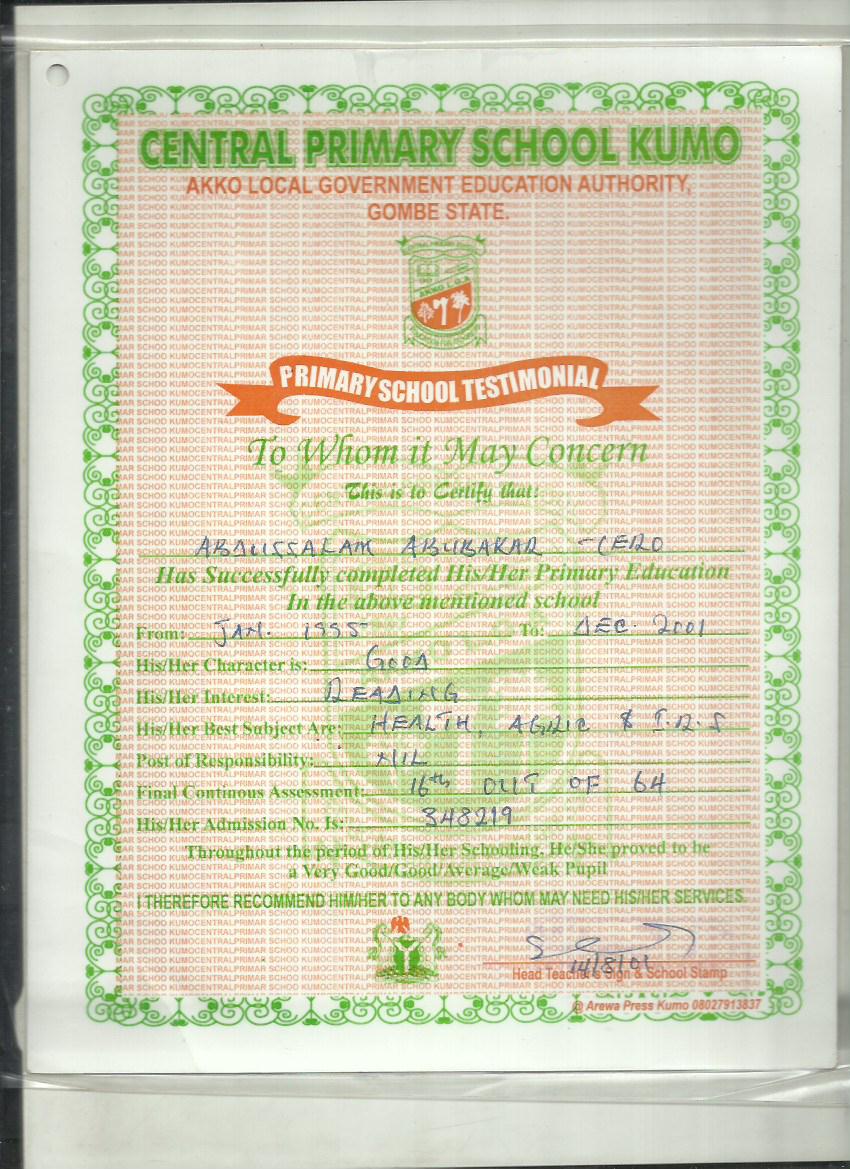 CENTRAL PRIMARY SCHOOL KUMO
AKKO LOCAL GOVERNMENT EDUCATION AUTHORITY,
GOMBE STATE.
AKKO L.G.A
PRIMARY SCHOOL TESTIMONIAL
To Whom it May Concern
This is to Certify that:
ABDUSSALAM ABUBAKAR
Has Successfully completed His/Her Primary Education
In the above mentioned school
From: JAN. 1995 To: DEC. 2001
His/Her Character is: GOOD
His/Her Interest: READING
His/Her Best Subject Are: HEALTH, AGRIC & I.R.S
Post of Responsibility: NIL
Final Continous Assessment: 16th OUT OF 64
His/Her Admission No. Is: 348219
Throughout the period of His/Her Schooling, He/She proved to be
a Very Good/Good/Average/Weak Pupil
I THEREFORE RECOMMEND HIM/HER TO ANY BODY WHOM MAY NEED HIS/HER SERVICES.
14/8/01
Head Teacher's Sign & School Stamp
@ Arewa Press Kumo 08027913837